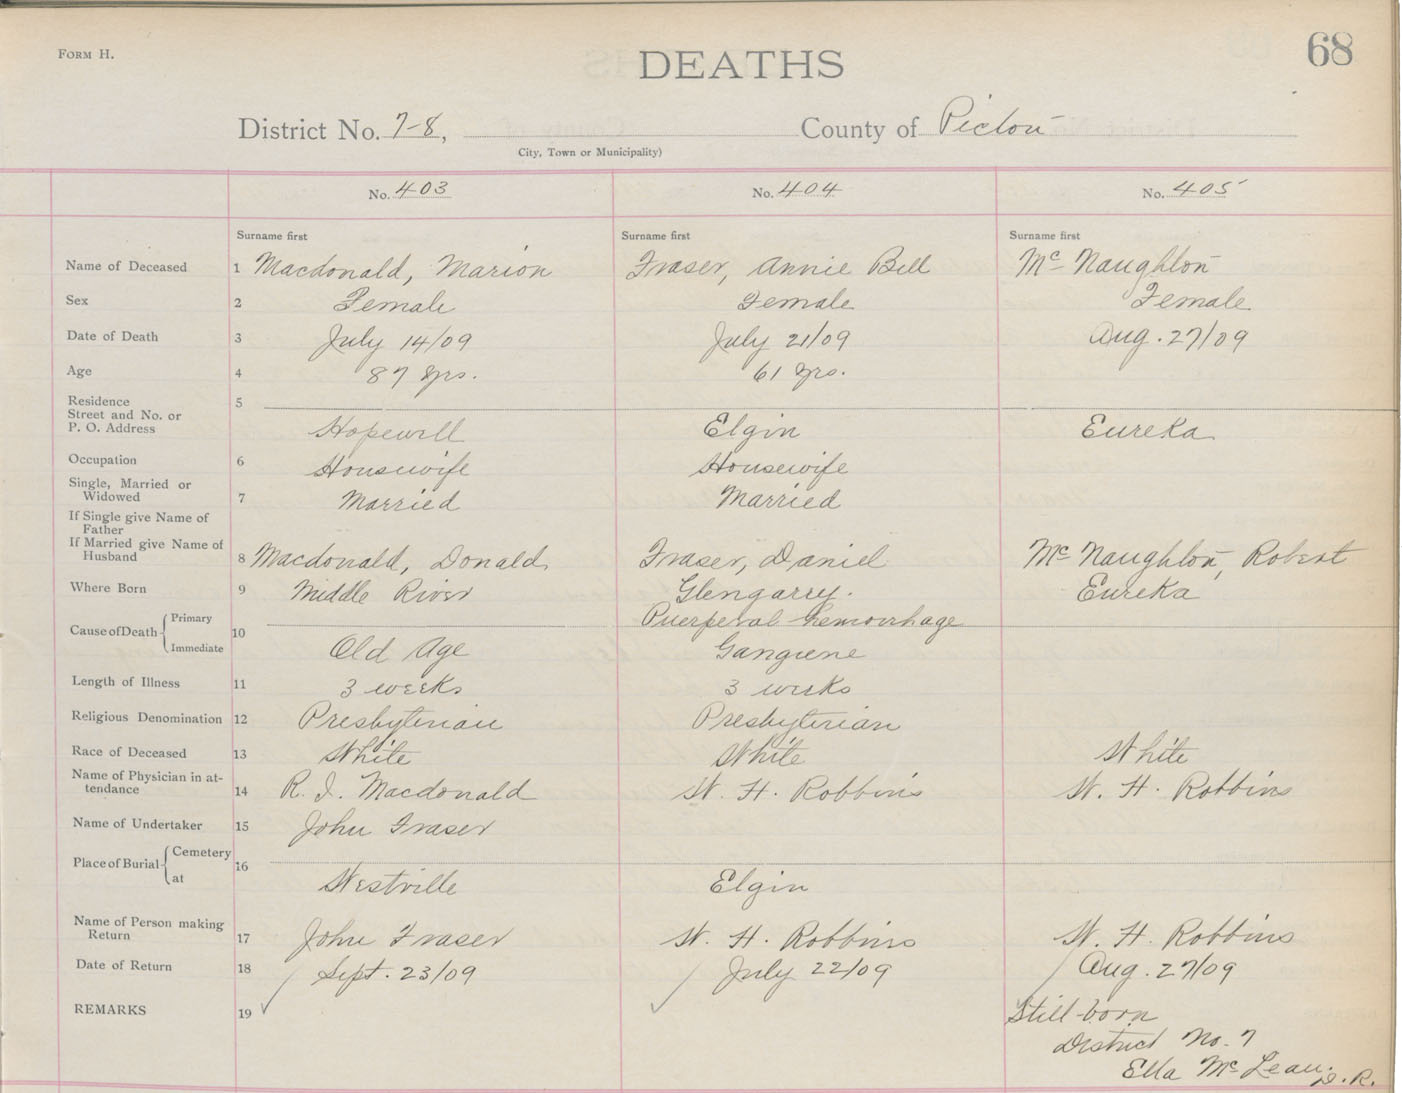 FORM H.
DEATHS
68
District No. 7-8, County of Pictou
City, Town or Municipality)
No. 403 No. 404 No. 405
Surname first Surname first Surname first
Name of Deceased 1 Macdonald, Marion Fraser, Annie Bell Mc Naughton
Sex 2 Female Female Female
Date of Death 3 July 14/09 July 21/09 Aug. 27/09
Age 4 87 yrs. 61 yrs.
Residence 5
Street and No. or
P. O. Address Hopewell Elgin Eureka
Occupation 6 Housewife Housewife
Single, Married or
Widowed 7 Married Married
If Single give Name of
Father
If Married give Name of
Husband 8 Macdonald, Donald Fraser, Daniel Mc Naughton, Robert
Where Born 9 Middle River Glengarry. Eureka
Cause of Death Primary 10 Puerperal hemorrhage
Immediate Old Age Gangrene
Length of Illness 11 3 weeks 3 weeks
Religious Denomination 12 Presbyterian Presbyterian
Race of Deceased 13 White White White
Name of Physician in at-
tendance 14 R. J. Macdonald W. H. Robbins W. H. Robbins
Name of Undertaker 15 John Fraser
Place of Burial Cemetery 16
at Westville Elgin
Name of Person making
Return 17 John Fraser W. H. Robbins W. H. Robbins
Date of Return 18 Sept. 23/09 July 22/09 Aug. 27/09
REMARKS 19 Still-born
District No. 7
Ella Mc Lean. D. R.